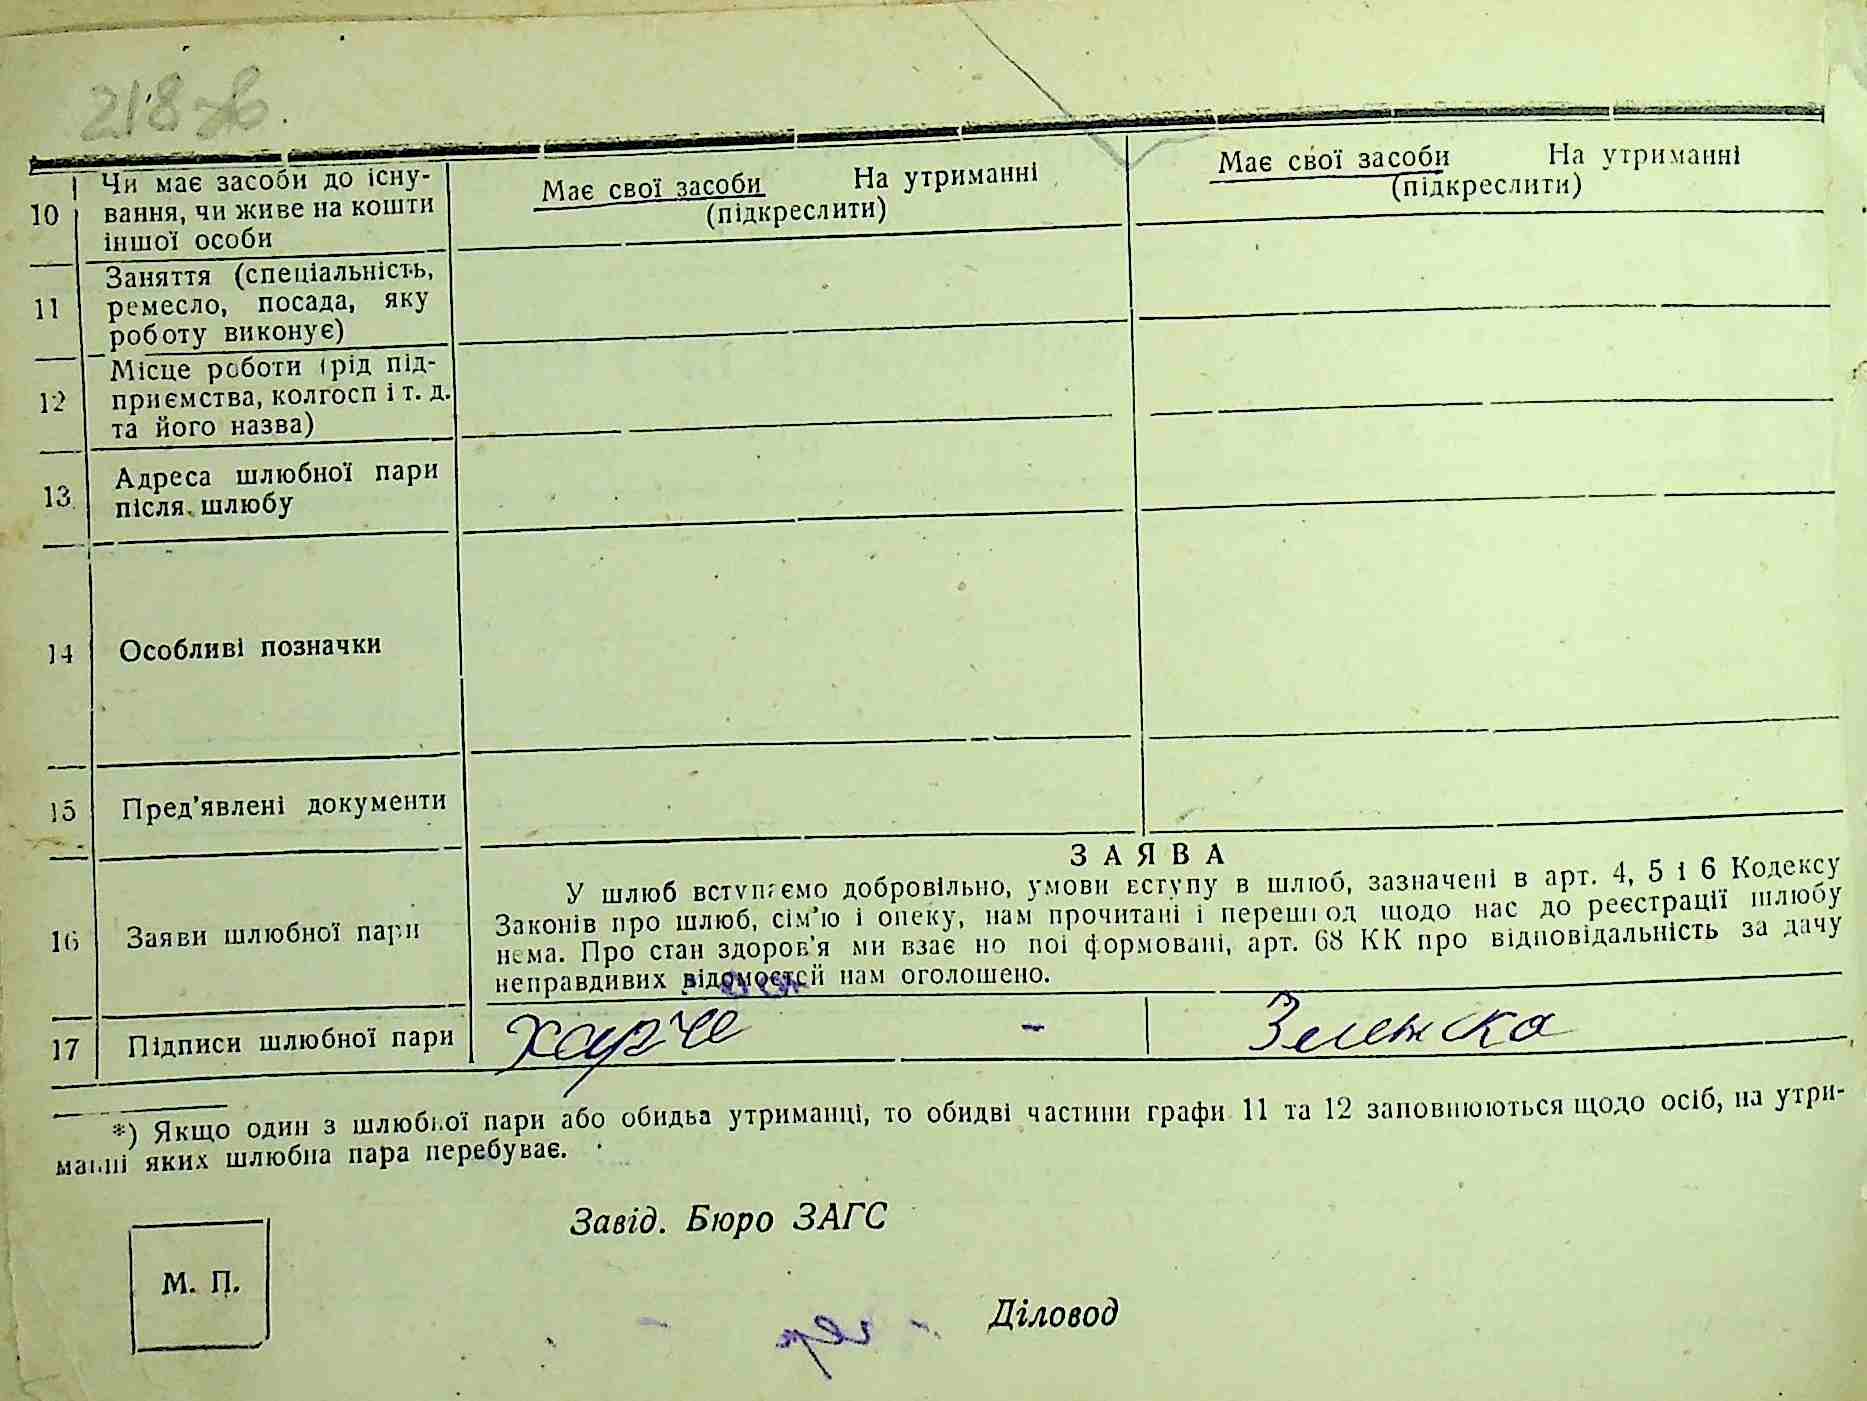 218 зв.
10 Чи має засоби до існу-
вання, чи живе на кошти
іншої особи
Має свої засоби На утриманні
(підкреслити)
Має свої засоби На утриманні
(підкреслити)
11 Заняття (спеціальність,
ремесло, посада, яку
роботу виконує)
12 Місце роботи (рід під-
приємства, колгосп і т. д.
та його назва)
13 Адреса шлюбної пари
після шлюбу
14 Особливі позначки
15 Пред'явлені документи
16 Заяви шлюбної пари
ЗАЯВА
У шлюб вступаємо добровільно, умови вступу в шлюб, зазначені в арт. 4, 5 і 6 Кодексу
Законів про шлюб, сім'ю і опеку, нам прочитані і перешкод щодо нас до реєстрації шлюбу
нема. Про стан здоров'я ми взаємно поінформовані, арт. 68 КК про відповідальність за дачу
неправдивих відомостей нам оголошено.
17 Підписи шлюбної пари
*) Якщо один з шлюбної пари або обидва утриманці, то обидві частини графи 11 та 12 заповнюються щодо осіб, на утри-
манні яких шлюбна пара перебуває.
Завід. Бюро ЗАГС
М. П.
Діловод